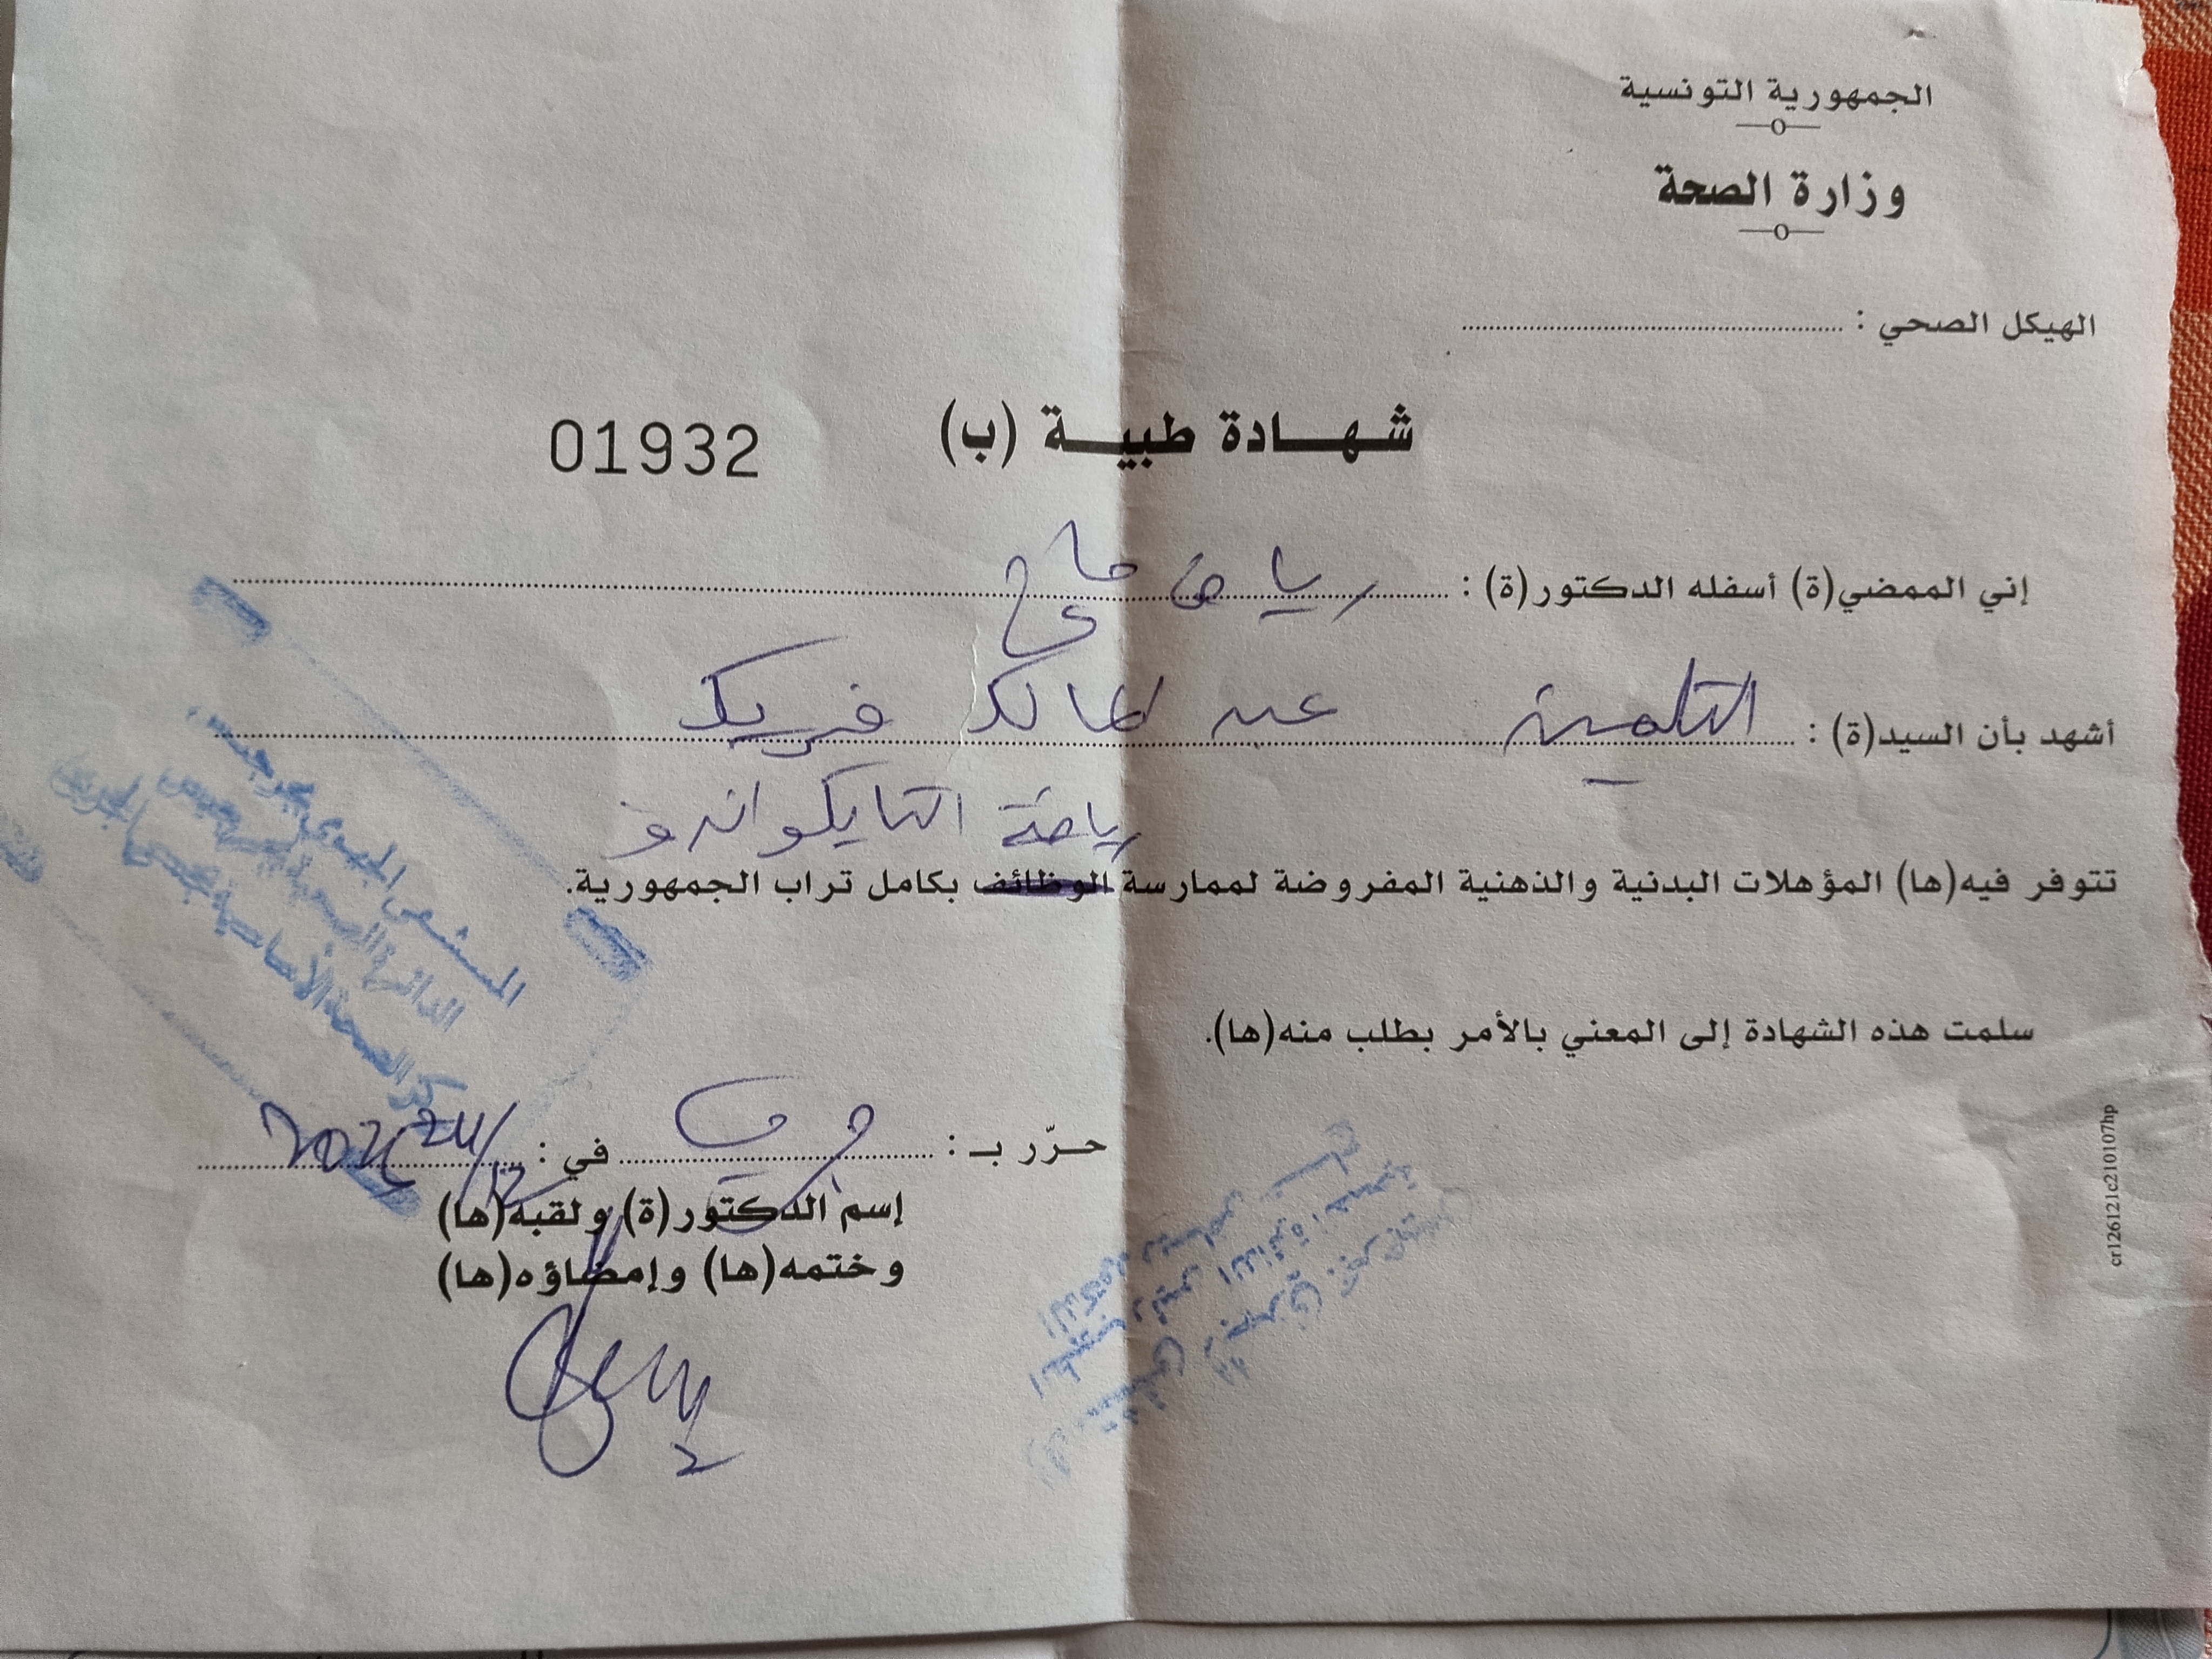 الجمهورية التونسية
وزارة الصحة
الهيكل الصحي :
شهادة طبية (ب)
01932
إني الممضي(ة) أسفله الدكتور(ة) : رياض
أشهد بأن السيد(ة) : التلميذ عبد المالك فريك
رياضة التايكواندو
تتوفر فيه(ها) المؤهلات البدنية والذهنية المفروضة لممارسة الوظائف بكامل تراب الجمهورية.
سلمت هذه الشهادة إلى المعني بالأمر بطلب منه(ها).
حرّر بـ : في :
إسم الدكتور(ة) ولقبه(ها)
وختمه(ها) وإمضاؤه(ها)
المستشفى الجهوي بجرجيس
cr126121c210107hp